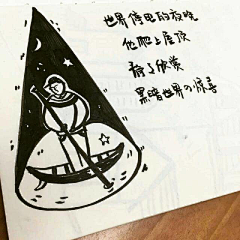 世界停电的夜晚
他爬上屋顶
静了欣赏
黑暗世界の惊喜